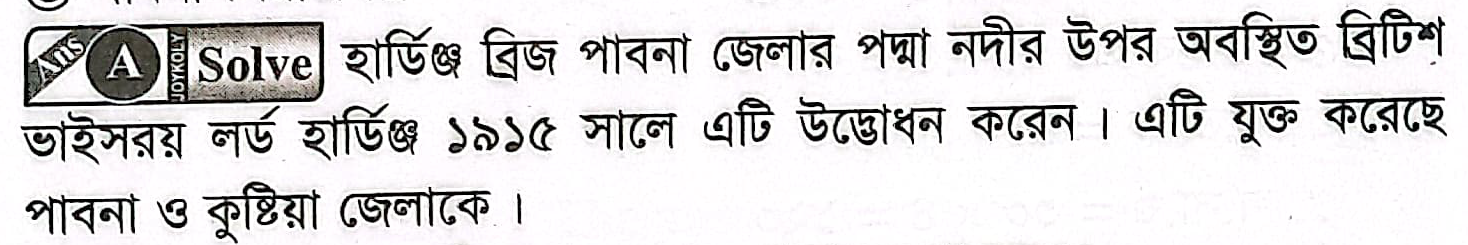 Ans A JOYKOLY Solve হার্ডিঞ্জ ব্রিজ পাবনা জেলার পদ্মা নদীর উপর অবস্থিত ব্রিটিশ
ভাইসরয় লর্ড হার্ডিঞ্জ ১৯১৫ সালে এটি উদ্ভোধন করেন। এটি যুক্ত করেছে
পাবনা ও কুষ্টিয়া জেলাকে।